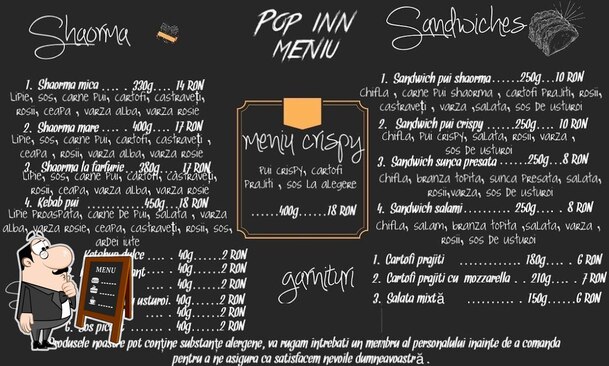 Shaorma
1. Shaorma mica .... . 330g.... 14 RON
Lipie, sos, carne Pui, cartofi, castraveți,
rosii, ceapa , varza alba, varza rosie
2. Shaorma mare ..... 400g.... 17 RON
Lipie, sos, carne Pui, cartofi, castraveți ,
ceapa , rosii, varza alba, varza rosie
3. Shaorma la farfurie .. 380g.....17 RON
Lipie, sos, carne Pui, cartofi, castraveți,
rosii, ceapa, varza alba, varza rosie
4. Kebab pui .............450g....18 RON
Lipie Proaspata, carne De Pui, salata , varza
alba, varza rosie, ceapa, castraveți, rosii, sos,
ardei iute
dulce .... 40g........2 RON
. 40g........2 RON
. 40g........2 RON
usturoi. 40g........2 RON
. 40g........2 RON
40g........2 RON
MENU
POP INN
MENIU
meniu crispy
Pui crispy, cartofi
Prajiti , sos la alegere
......400g......18 RON
garnituri
Sandwiches
1. Sandwich pui shaorma ......250g...10 RON
Chifla , carne Pui shaorma , cartofi Prajiti, rosii,
castraveți , varza ,salata, sos De usturoi
2. Sandwich pui crispy .....250g.... 10 RON
Chifla, Pui crispy, salata, rosii , varza ,
sos De usturoi
3. Sandwich sunca presata .....250g...8 RON
Chifla, branza topita, sunca Presata, salata,
rosii,varza, sos De usturoi
4. Sandwich salami ............250g.... 8 RON
Chifla, salam, branza topita ,salata, varza ,
rosii, sos De usturoi
1. Cartofi prajiti ............... 180g.... 6 RON
2. Cartofi prajiti cu mozzarella .. 210g.... 7 RON
3. Salata mixtă .................150g....6 RON
noastre pot conține substanțe alergene, va rugam intrebati un membru al personalului inainte de a comanda
pentru a ne asigura ca satisfacem nevoile dumneavoastră .